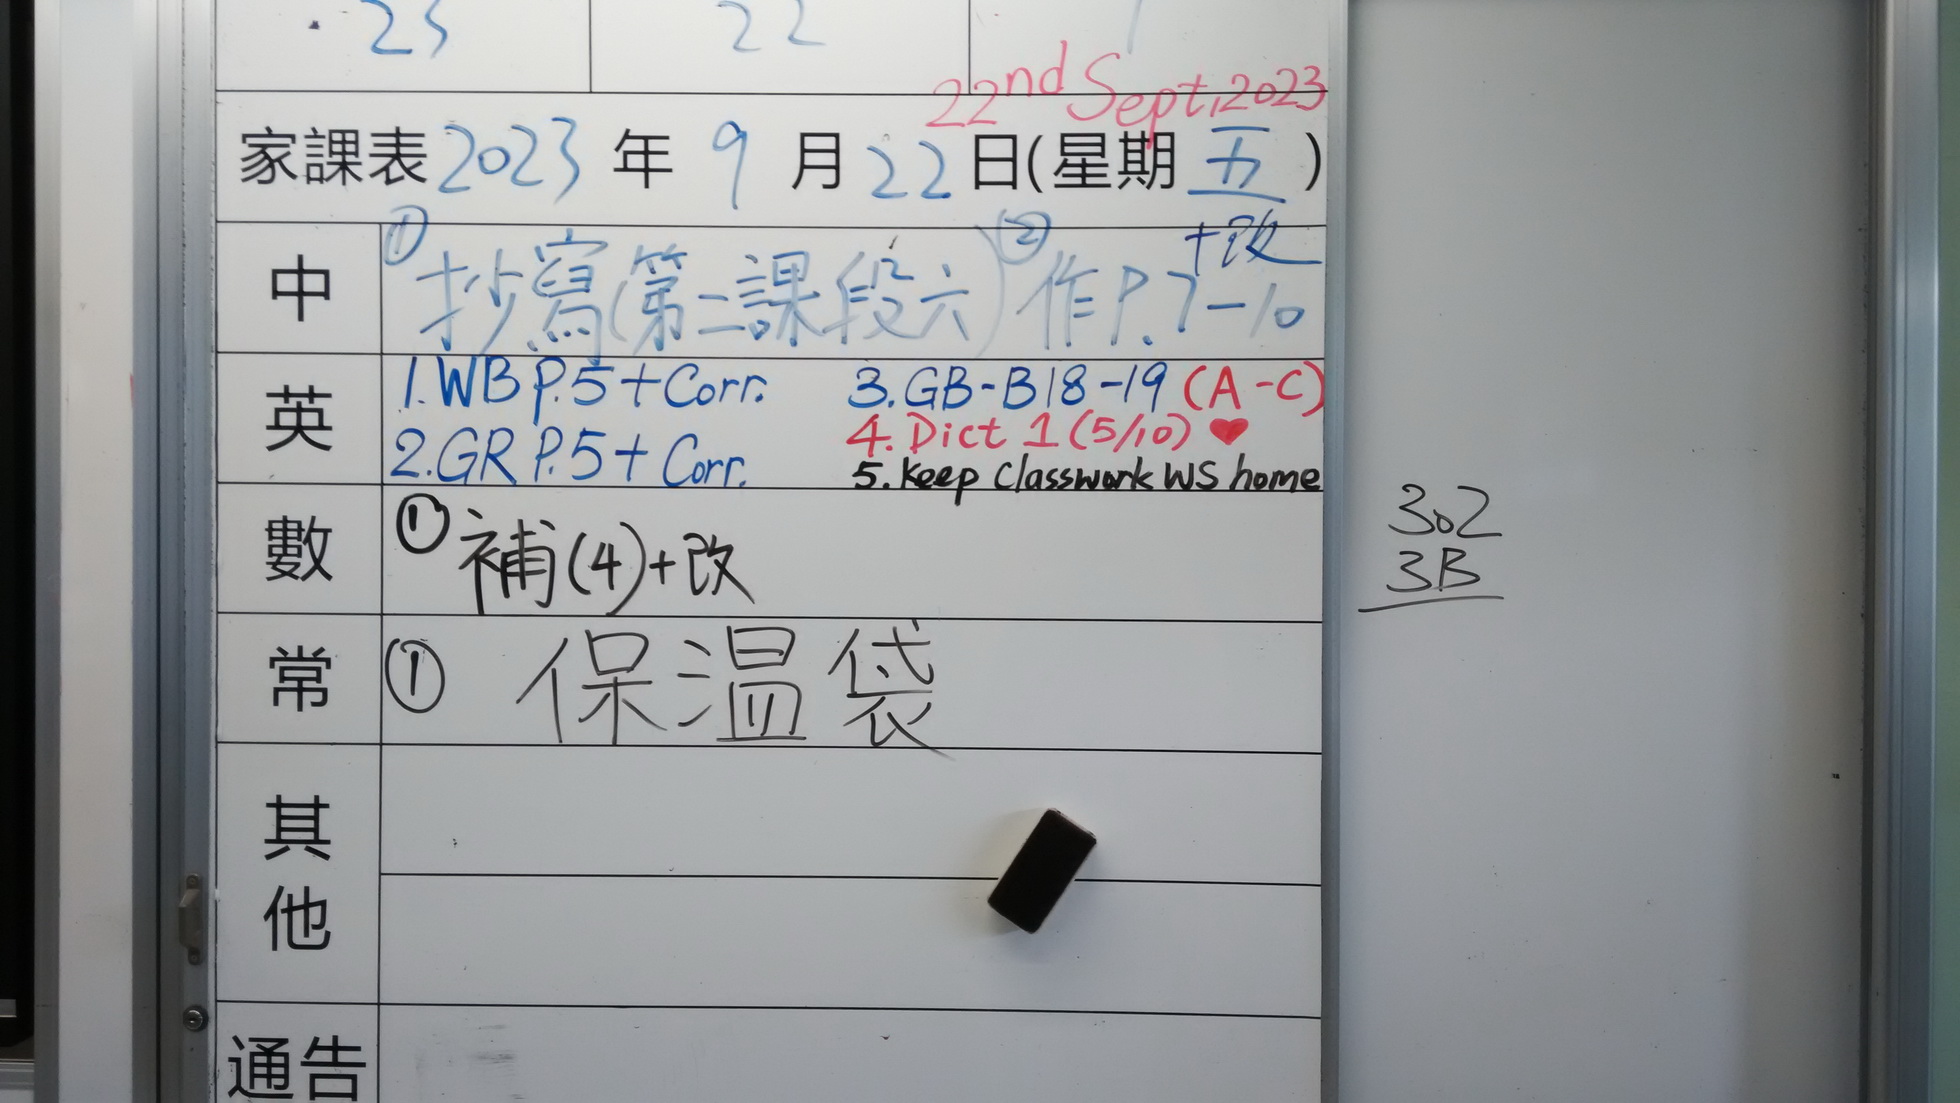 23 22
22nd Sept, 2023
家課表 2023 年 9 月 22 日(星期 五 )
中 ① 抄寫(第二課段六) ② 作P.7-10 +改
英 1. WB P.5 + Corr. 3. GB-B18-19 (A-C)
4. Dict 1 (5/10) ♥
2. GR P.5 + Corr. 5. Keep Classwork WS home
數 ① 補(4)+改
302
3B
常 ① 保温袋
其他
通告